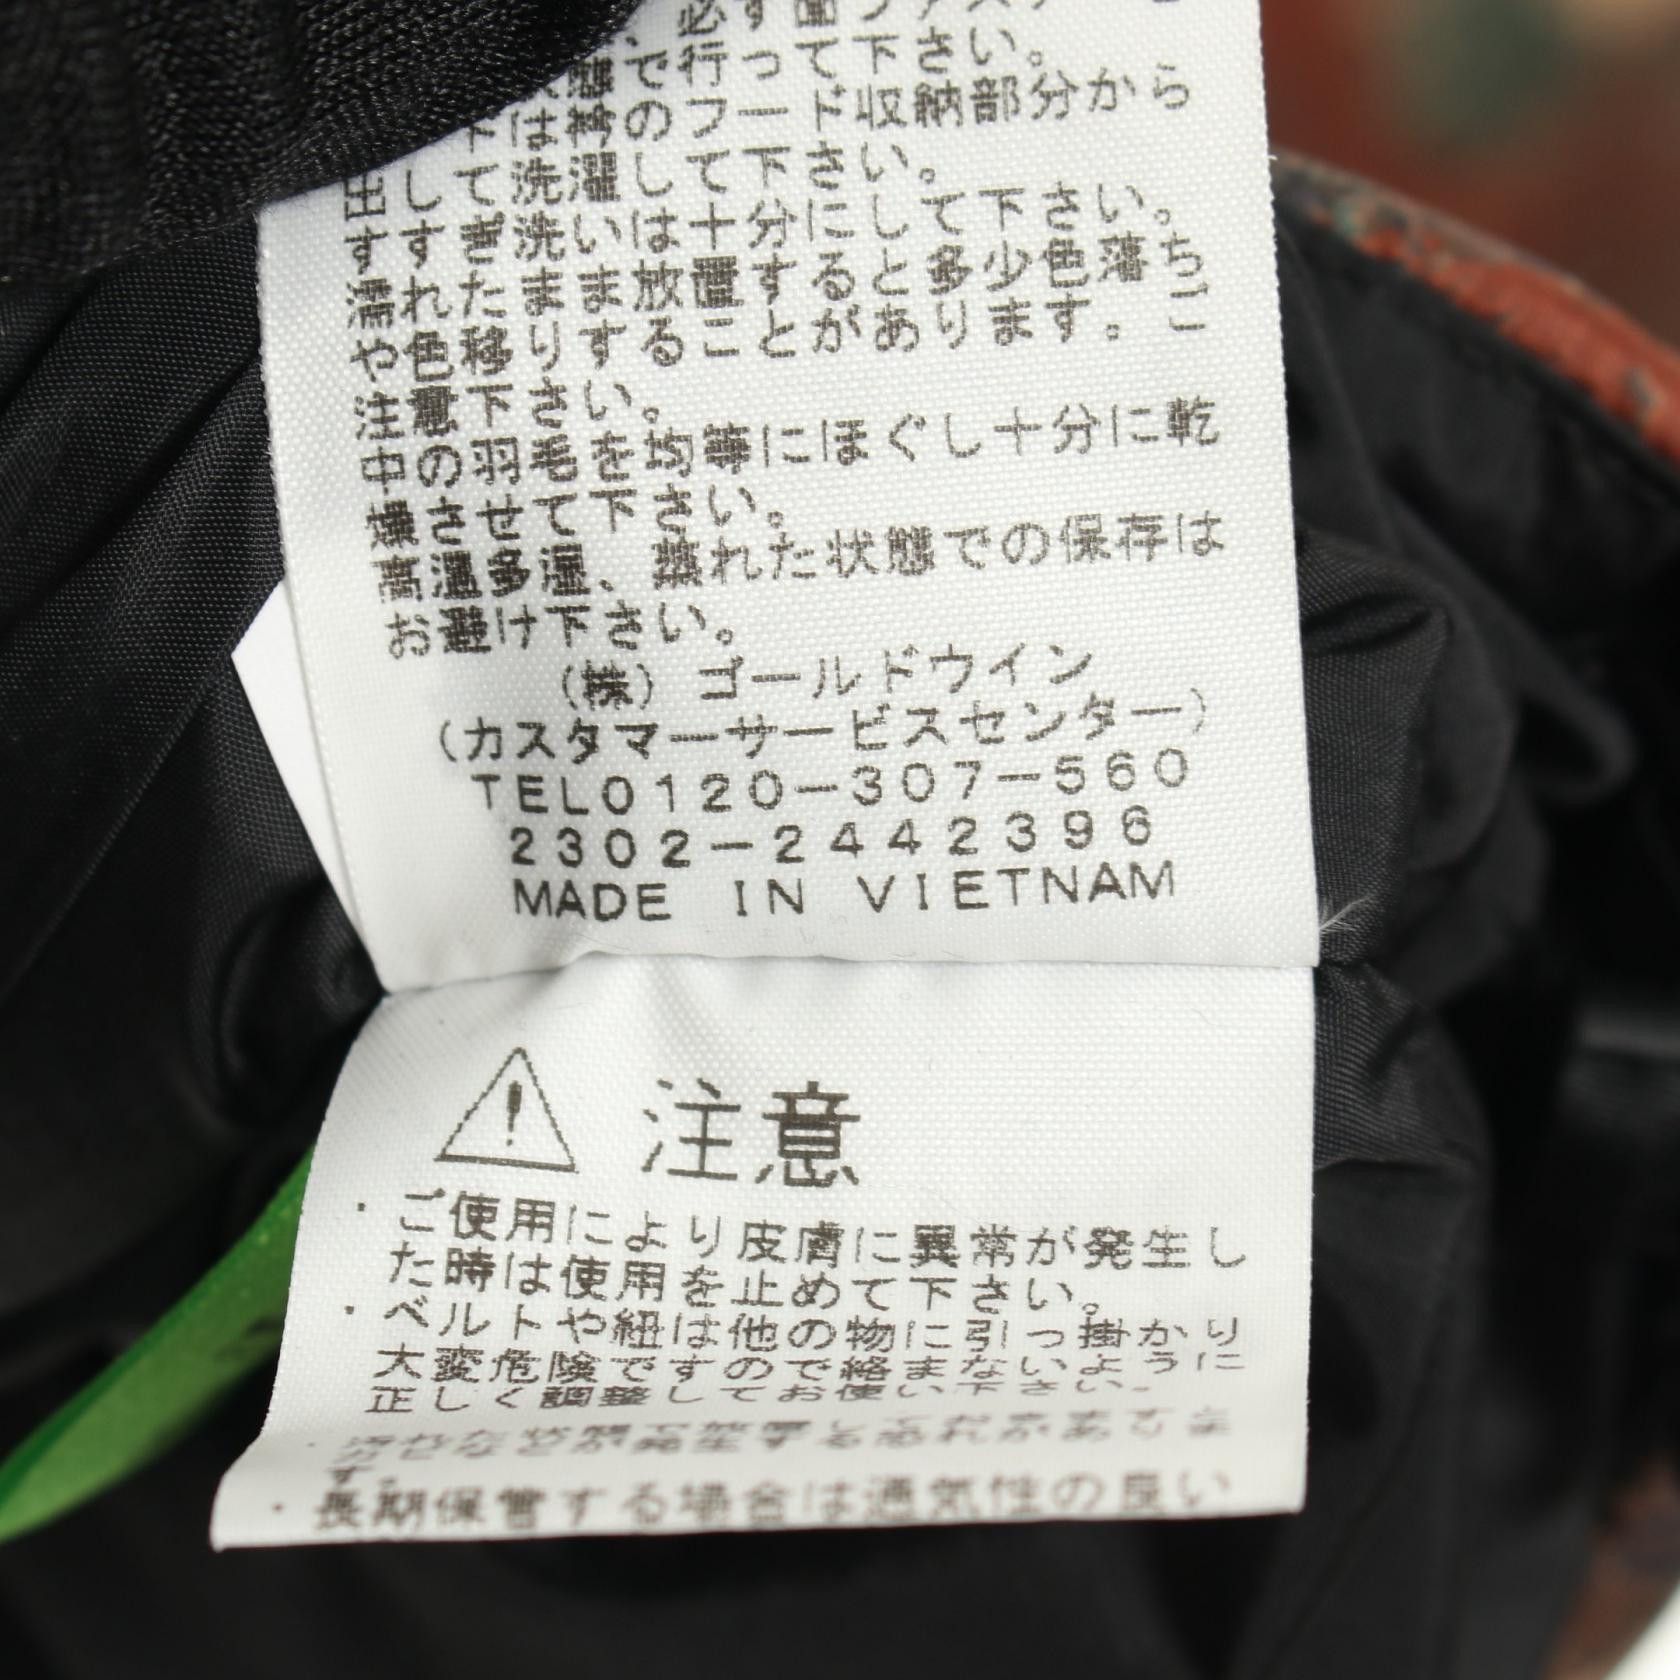 で行って下さい。
のフード収納部分から
出して洗濯して下さい。
すすぎ洗いは十分にして下さい。
濡れたまま放置すると多少色落ち
や色移りすることがあります。ご
注意下さい。
中の羽毛を均等にほぐし十分に乾
燥させて下さい。
高温多湿、蒸れた状態での保存は
お避け下さい。
(株) ゴールドウイン
(カスタマーサービスセンター)
TEL0120-307-560
2302-2442396
MADE IN VIETNAM
注意
・ご使用により皮膚に異常が発生し
た時は使用を止めて下さい。
・ベルトや紐は他の物に引っ掛かり
大変危険ですので絡まないように
正しく調整してお使い下さい。
す。
・長期保管する場合は通気性の良い